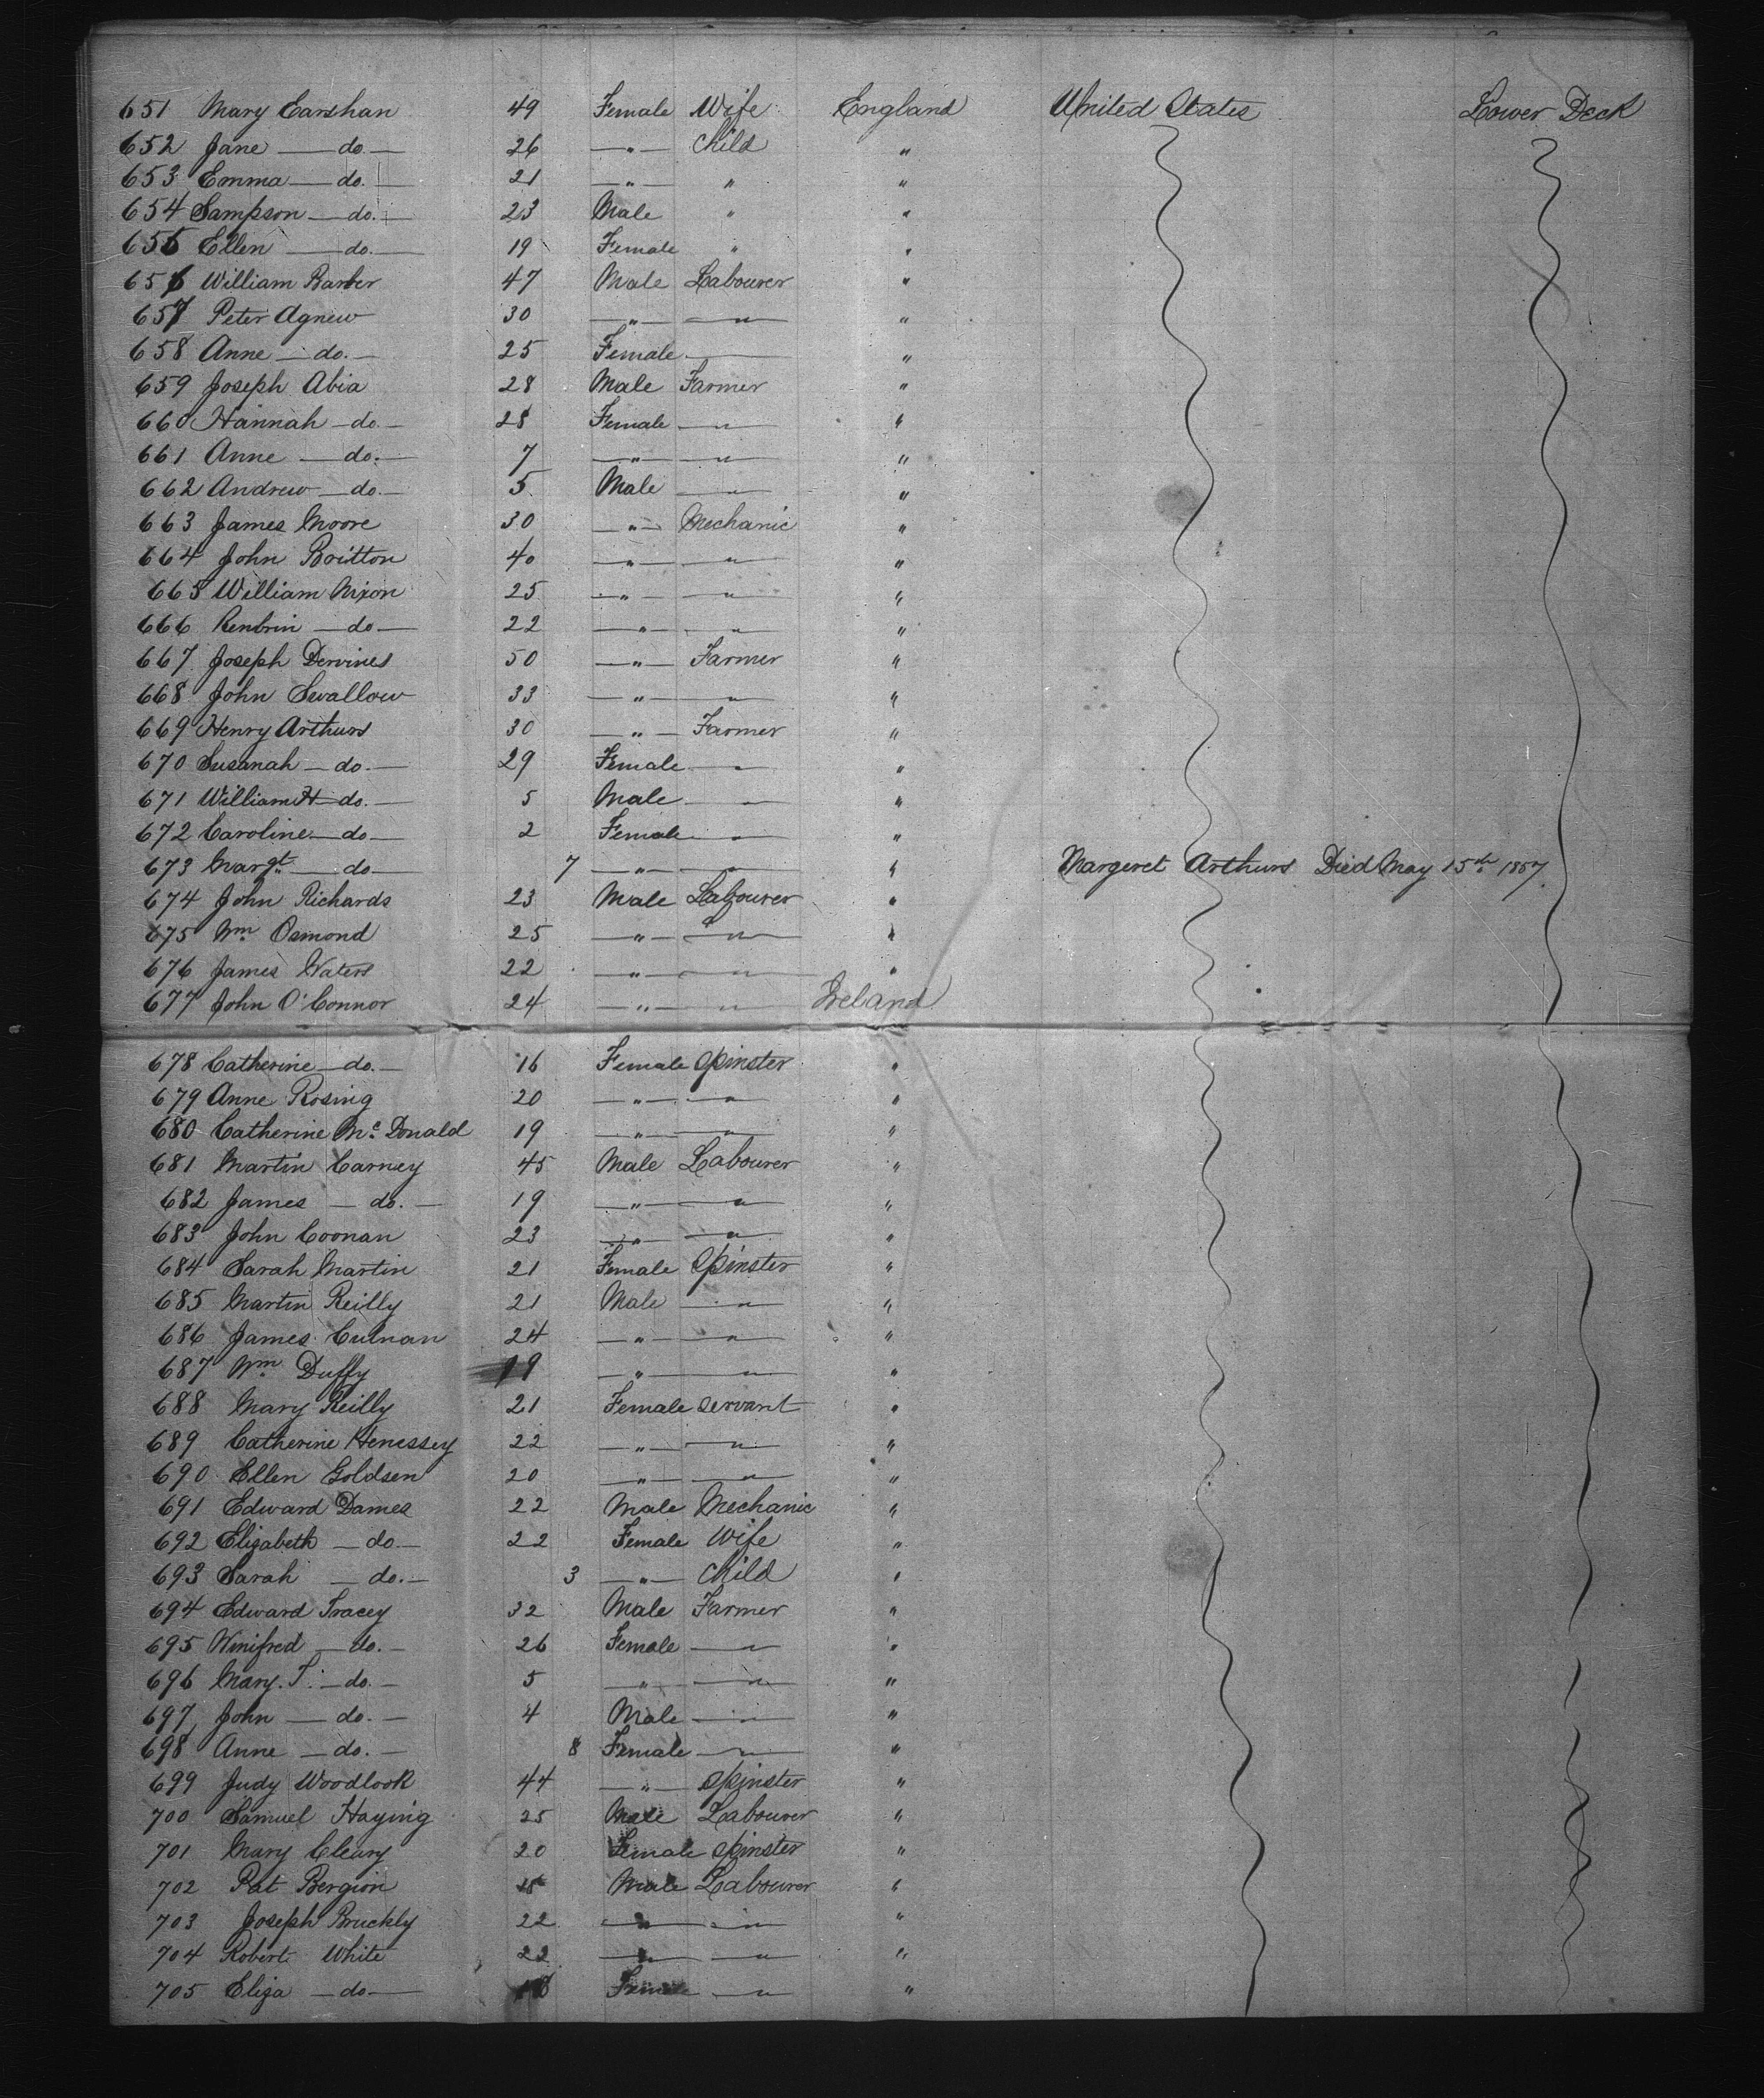 651 Mary Earshan 49 Female Wife England United States Lower Deck
652 Jane — do. — 26 — " — Child "
653 Emma — do. — 21 — " — " "
654 Sampson — do. — 23 Male " "
655 Ellen — do. — 19 Female " "
656 William Barber 47 Male Labourer "
657 Peter Agnew 30 — " — — " — "
658 Anne — do. — 25 Female — "
659 Joseph Abia 28 Male Farmer "
660 Hannah — do. — 28 Female — " — "
661 Anne — do. — 7 — " — — " — "
662 Andrew — do. — 5 Male — " — "
663 James Moore 30 — " — Mechanic "
664 John Britton 40 — " — — " — "
665 William Nixon 25 — " — — " — "
666 — do — 22 — " — — " — "
667 Joseph Dervines 50 — " — Farmer "
668 John Swallow 33 — " — — " — "
669 Henry Arthurs 30 — " — Farmer "
670 Susanah — do. — 29 Female — " — "
671 William H — do. — 5 Male — " — "
672 Caroline — do — 2 Female — " — "
673 Margt. — do — 7 — " — — " — " Margeret Arthurs Died May 15th 1867
674 John Richards 23 Male Labourer "
675 Wm. Osmond 25 — " — — " — "
676 James Waters 22 — " — — " — "
677 John O'Connor 24 — " — — " — Ireland
678 Catherine — do. — 16 Female Spinster "
679 Anne Rosing 20 — " — — " — "
680 Catherine Mc. Donald 19 — " — — " — "
681 Martin Carney 45 Male Labourer "
682 James — do. — 19 — " — — " — "
683 John Coonan 23 — " — — " — "
684 Sarah Martin 21 Female Spinster "
685 Martin Reilly 21 Male — " — "
686 James Culnan 24 — " — — " — "
687 Wm. Duffy 19 — " — — " — "
688 Mary Reilly 21 Female Servant "
689 Catherine Henessey 22 — " — — " — "
690 Ellen Goldsen 20 — " — — " — "
691 Edward Dames 22 Male Mechanic "
692 Elizabeth — do. — 22 Female Wife "
693 Sarah — do. — 3 — " — Child "
694 Edward Tracey 32 Male Farmer "
695 Winifred — do. — 26 Female — " — "
696 Mary. T. — do. — 5 — " — — " — "
697 John — do. — 4 Male — " — "
698 Anne — do. — 8 Female — " — "
699 Judy Woodlook 44 — " — Spinster "
700 Samuel Haying 25 Male Labourer "
701 Mary Cleary 20 Female Spinster "
702 Pat Bergion Male Labourer "
703 Joseph Bruckly 22 — " — — " — "
704 Robert White 22 — " — — " — "
705 Eliza — do — 18 Female — " — "